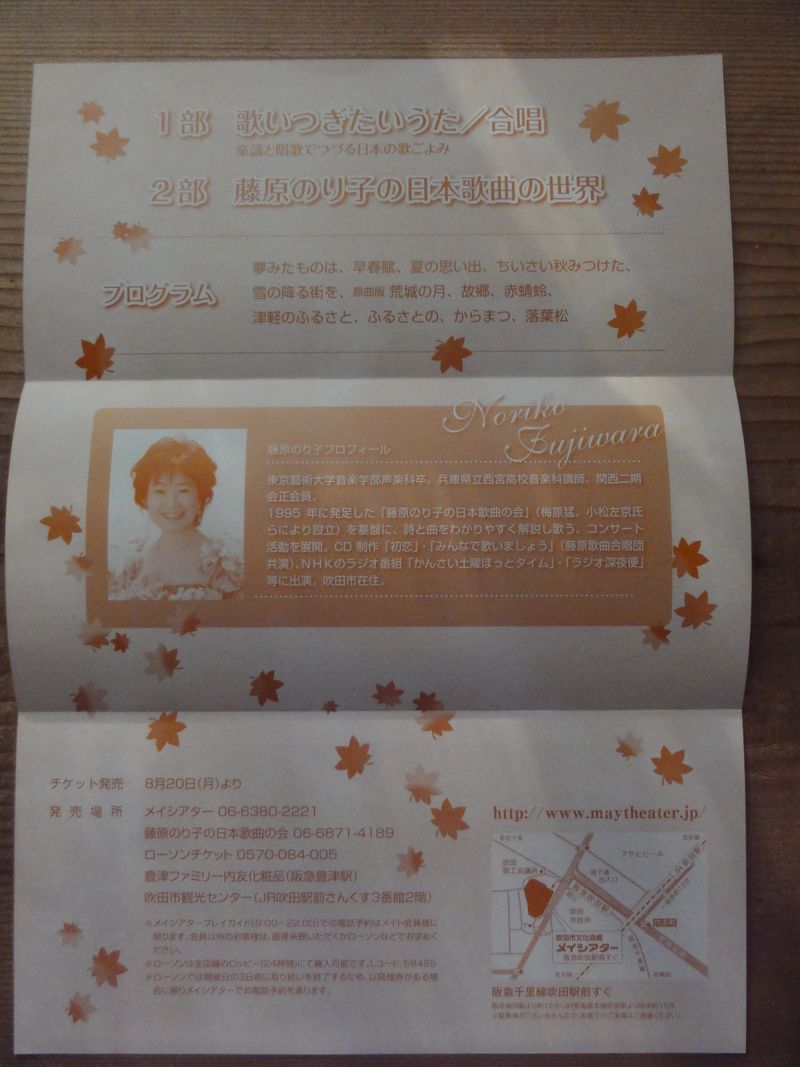 1部 歌いつぎたいうた／合唱
童謡と唱歌でつづる日本の歌ごよみ
2部 藤原のり子の日本歌曲の世界
プログラム
夢みたものは、早春賦、夏の思い出、ちいさい秋みつけた、
雪の降る街を、原曲版 荒城の月、故郷、赤蜻蛉、
津軽のふるさと、ふるさとの、からまつ、落葉松
Noriko
Fujiwara
藤原のり子プロフィール
東京藝術大学音楽学部声楽科卒。兵庫県立西宮高校音楽科講師。関西二期
会正会員。
1995年に発足した「藤原のり子の日本歌曲の会」（梅原猛、小松左京氏
らにより設立）を基盤に、詩と曲をわかりやすく解説し歌う、コンサート
活動を展開。CD制作「初恋」・「みんなで歌いましょう」（藤原歌曲合唱団
共演）、NHKのラジオ番組「かんさい土曜ほっとタイム」・「ラジオ深夜便」
等に出演。吹田市在住。
チケット発売 8月20日（月）より
発売場所 メイシアター 06-6380-2221
藤原のり子の日本歌曲の会 06-6871-4189
ローソンチケット 0570-084-005
豊津ファミリー内友化粧品（阪急豊津駅）
吹田市観光センター（JR吹田駅前さんくす3番館2階）
※メイシアタープレイガイド（9:00〜22:00）での電話予約はメイト会員様に
限ります。会員以外のお客様は、直接来館いただくかローソンなどでお求めく
ださい。
※ローソンは全店舗のロッピー（24時間）にて購入可能です。Lコード：58425
※ローソンでは開催日の3日前に取り扱いを終了するため、以降残券がある場
合に限りメイシアターでお電話予約を承ります。
http://www.maytheater.jp/
アサヒビール
吹田
商工会議所
地下道
出入口
阪急吹田駅
JR吹田駅
吹田
市役所
内本町
吹田市文化会館
メイシアター
阪急吹田駅前すぐ
阪急千里線吹田駅前すぐ